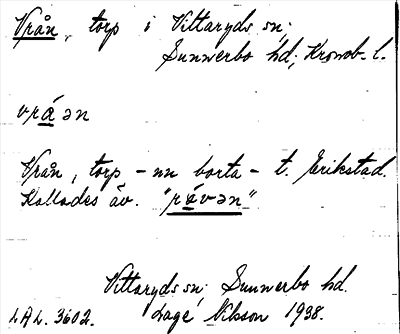 Vrån, torp i Vittaryds sn;
Sunnerbo hd; Kronob. l.
vrǻən
Vrån, torp - nu borta - t. Erikstad.
Kallades äv. "rǻvən"
Vittaryds sn; Sunnerbo hd.
LAL. 3602. Lage Nilsson 1938.